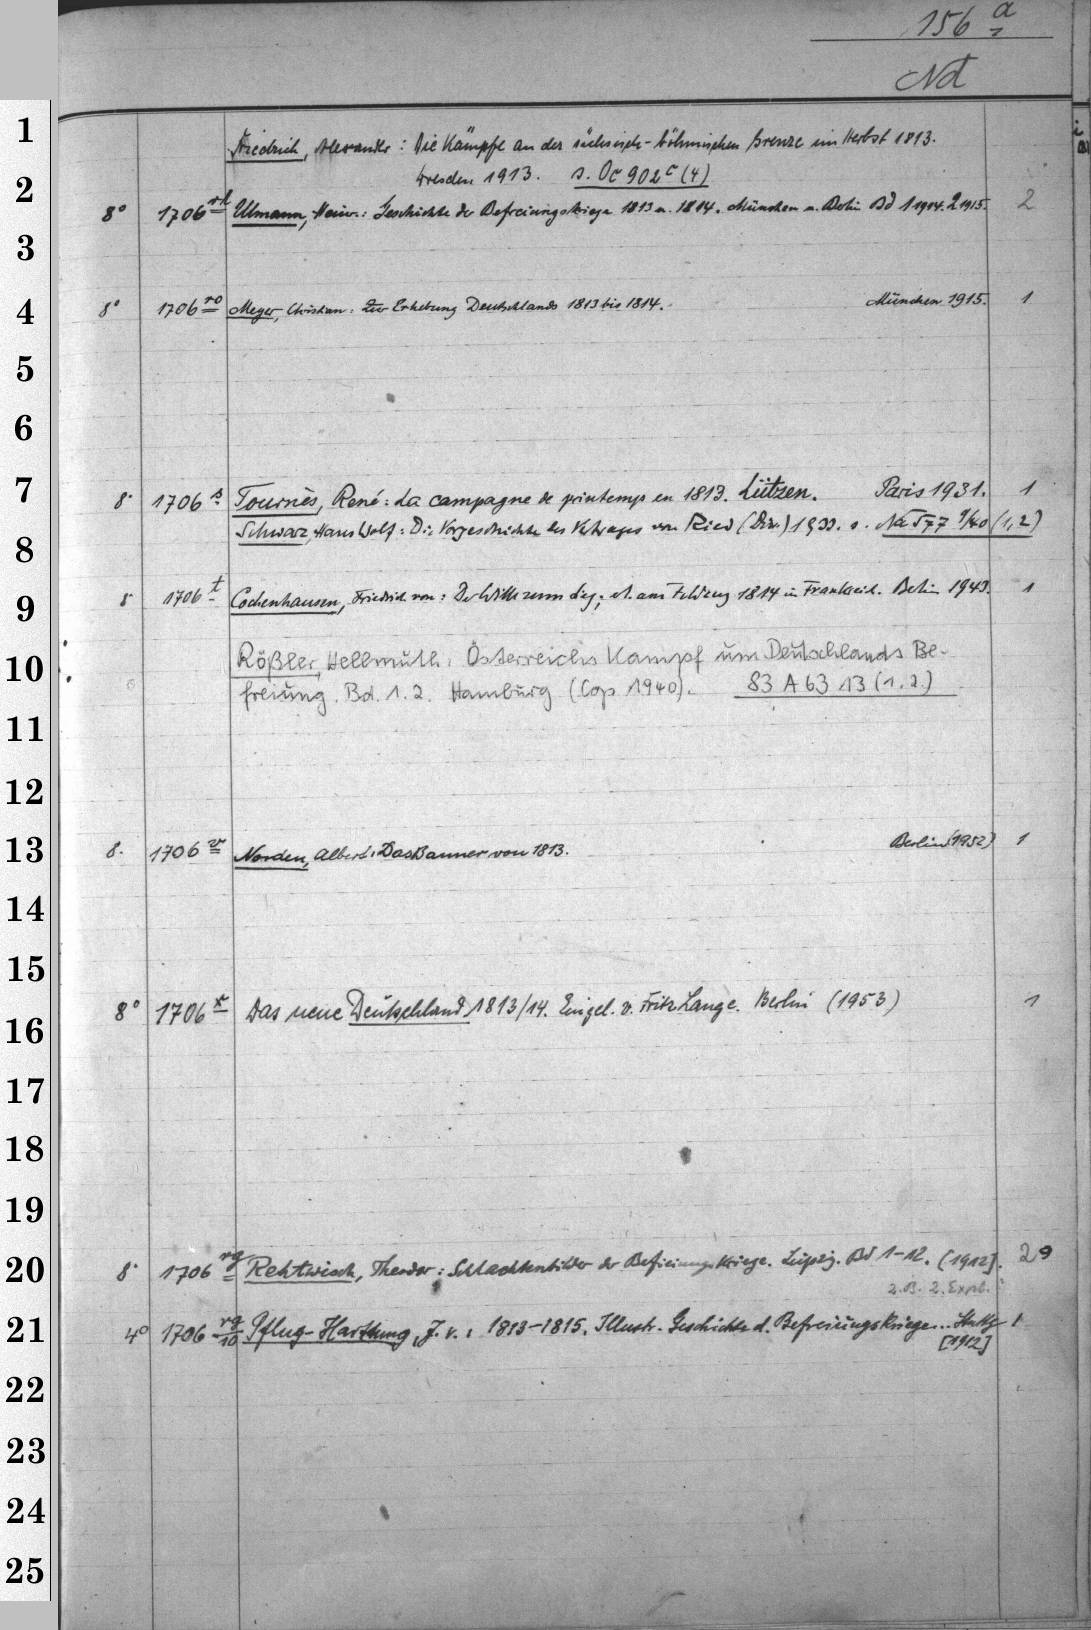 156 a
Nd
1
Friedrich, Alexander: Die Kämpfe an der sächsisch-böhmischen Grenze im Herbst 1813.
2
Dresden 1913. s. Oc 902 c (4)
8° 1706 rk Ulmann, Heinr.: Geschichte der Befreiungskriege 1813 u. 1814. München u. Berlin Bd 1 1914. 2 1915. 2
3
4
8° 1706 ro Meyer, Christian: Zur Erhebung Deutschlands 1813 bis 1814. München 1915. 1
5
6
7
8° 1706 s Tournès, René: La campagne de printemps en 1813. Lützen. Paris 1931. 1
Schwarz, Hans Wolf: Die Vorgeschichte des Vertrages von Ried (Diss.) 1933. s. Na 577 9/40 (1,2)
8
9
8 1706 t Cochenhausen, Friedrich von: Der Wille zum Sieg; am Feldzug 1814 in Frankreich. Berlin 1943. 1
10
Rößler, Hellmuth: Österreichs Kampf um Deutschlands Be-
freiung. Bd. 1. 2. Hamburg (Cop. 1940). 83 A 63 13 (1.2.)
11
12
13
8. 1706 v Norden, Albert: Das Banner von 1813. Berlin (1952) 1
14
15
16
8° 1706 x Das neue Deutschland 1813/14. Eingel. v. Fritz Lange. Berlin (1953) 1
17
18
19
20
8° 1706 rg Rehtwisch, Theodor: Schlachtenbilder der Befreiungskriege. Leipzig. Bd 1-12. (1912). 29
2. Expl.
21
4° 1706 rg/10 Pflug-Harttung, J. v.: 1813-1815. Illustr. Geschichte d. Befreiungskriege... Stuttg 1
[1912]
22
23
24
25